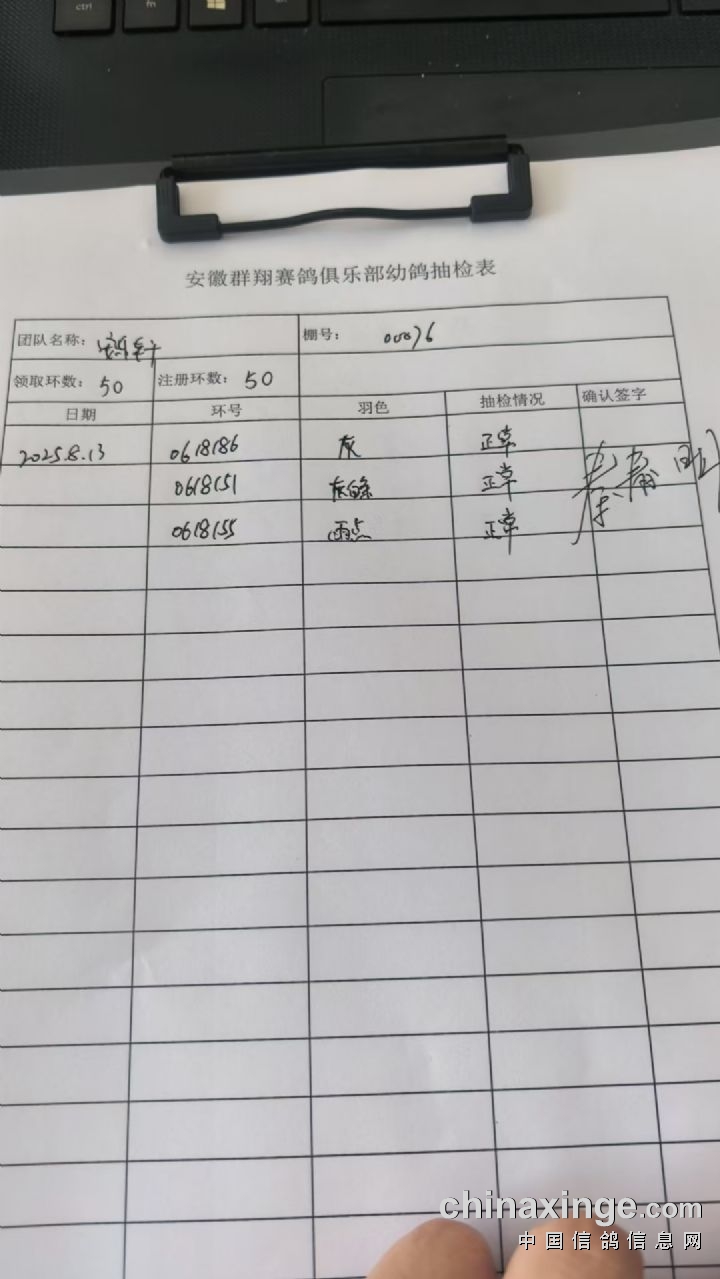 ctrl
fn
alt
安徽群翔赛鸽俱乐部幼鸽抽检表
团队名称： 棚号： 00076
领取环数：50 注册环数：50
日期 环号 羽色 抽检情况 确认签字
2025.8.13 0618186 灰 正常
0618151 灰白条 正常
0618155 雨点 正常
chinaxinge.com
中国信鸽信息网